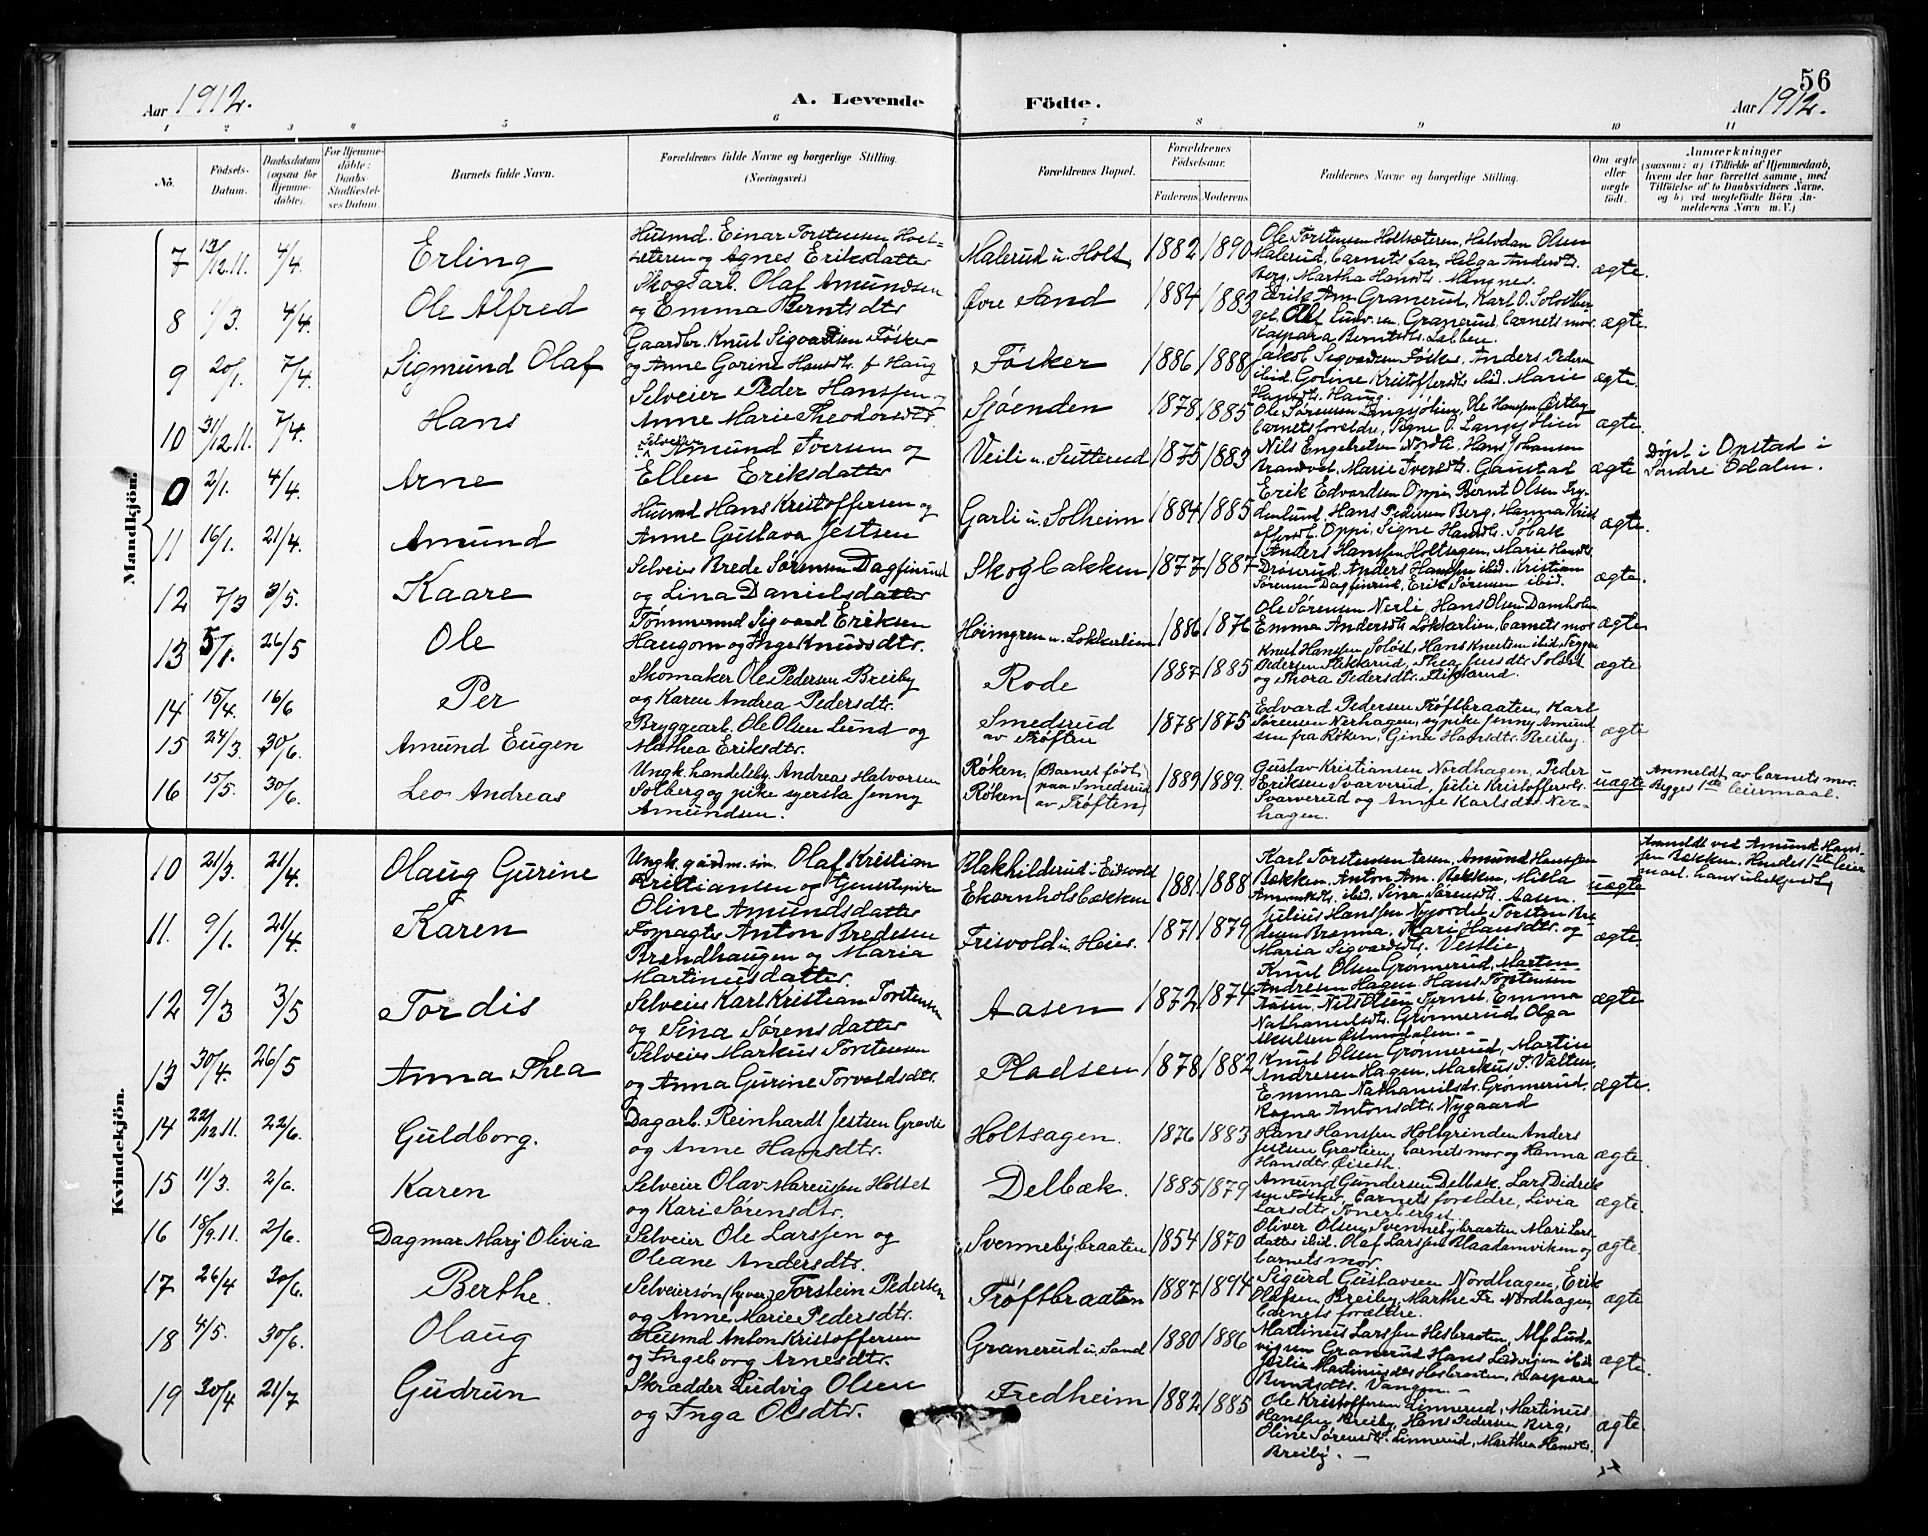 56
Aar 1912.
A. Levende Födte.
Aar 1912.
1 2 3 4 5 6 7 8 9 10 11
No.
Födsels-Datum.
Daabsdatum (ogsaa for Hjemme-döbte).
For Hjemme-döbte: Daabs-Stadfæstel-ses Datum.
Barnets fulde Navn.
Forældrenes fulde Navne og borgerlige Stilling. (Næringsvei.)
Forældrenes Bopæl.
Forældrenes Födselsaar.
Faderens Moderens
Faddernes Navne og borgerlige Stilling.
Om ægte eller uægte födt.
Anmærkninger
(saasom: a) i Tilfælde af Hjemmedaab, hvem der har forrettet samme, med Tilföielse af to Daabsvidners Navne, og b) ved uegtefödte Börn An-melderens Navn m. V.)
Mandkjön.
7 13/12.11. 4/4. Erling
Husmd. Einar Torstensen Holt-
seteren og Agnes Eriksdatter
Malerud u. Holt 1882 1890
Ole Torstensen Holtsæteren, Halvdan Olsen
Malerud, barnets far, Helga Andersdt.
Berg, Martha Hansdt. Mangnes.
ægte.
8 1/3. 4/4. Ole Alfred
Skogsarb. Olaf Amundsen
og Emma Berntsdtr
Øvre Sand 1884 1883
Erik Am. Granerud, Karl O. Solvber-
get, Granerud, barnets mor
Kaspara Berntsdt.
ægte.
9 20/1. 7/4. Sigmund Olaf
Gaardbr. Knut Sigvardsen Fösker
og Anne Gorine Hansdt. f Haug
Fösker 1886 1888
Jakob Sigvardsen Fösker, Anders Pedersen
ibid. Gorine Kristoffersdt. ibid. Marie
Hansdt. Haug.
ægte.
10 31/12.11. 7/4. Hans
Selveier Peder Hanssen og
Anne Marie Theodorsdtr
Sjøenden 1878 1885
Ole Sørensen Langsjölien, Ole Hanssen Østby
barnets foreldre, Signe O. Langsjölien
ægte.
0 2/1. 4/4. Arne
Selveier Amund Iversen og
Ellen Eriksdatter
Veili u. Sutterud 1875 1883
Nils Engebretsen Nordli, Hans Johansen
Brandvol, Marie Iversdt. Gaustad
ægte
Døpt i Opstad i
Søndre Odalen.
11 16/1. 21/4. Amund
Husmd Hans Kristoffersen og
Anne Gustava Jestsen
Garli u. Solheim 1884 1885
Erik Edvardsen Oppi, Bernt Olsen Fry-
denlund, Hans Pedersen Berg, Hanna Krist-
offersdt. Oppi, Signe Hansdt. Sobak
ægte.
12 7/3 3/5. Kaare
Selveier Brede Sørensen Dagfinrud
og Lina Danielsdatter
Skogbakken 1877 1887
Anders Hanssen Holtsagen, Marie Hansdt.
Drisrud, Anders Hanssen ibid. Kristian
Sørensen Dagfinrud, Erik Sørensen ibid.
ægte.
13 5/1. 26/5 Ole
Tømmermd Sigvard Eriksen
Haugom og Inga Knudsdtr.
Höimyren u. Lökkerlien 1886 1876
Ole Sørensen Nerli, Hans Olsen Damholen
Emma Andersdt. Løkkerlien, barnets mor
ægte
14 15/4. 16/6 Per
Skomaker Ole Pedersen Breiby
og Karen Andrea Pedersdtr.
Rode 1887 1885
Knut Hanssen Soløst, Hans Knutsen ibid.
Pedersen Flikkerud, Thea Jensdt. Soløst
og Thora Pedersdt. Flikkerud.
ægte
15 24/3. 30/6. Amund Eugen
Bryggearb. Ole Olsen Lund og
Mathea Eriksdtr.
Smederud
av Trøften 1878 1875
Edvard Pedersen Trøftbraaten, Karl
Sørensen Nerhagen, sypike Jenny Amund
sen fra Røken, Gina Hansdt. Breiby.
ægte
16 15/5. 30/6. Leo Andreas
Ungk. handelsb. Andreas Halvorsen
Solberg og pike syerske Jenny
Amundsen.
Røken (Barnet født
Røken paa Smederud
av Trøften) 1889 1889.
Gustav Kristiansen Nordhagen, Peder
Eriksen Svarverud, Julie Kristoffersdt.
Svarverud og Anne Karlsdt. Ner-
hagen.
uægte
Anmeldt av barnets mor.
Begges 1ste leiermaal.
Kvindekjön.
10 21/3. 21/4. Olaug Gurine
Ungk. gardm. søn Olaf Kristian
Kristiansen og tjenestepike
Oline Amundsdatter
Blakhilderud i Eidsvold
Ekornholsbakken 1881 1888
Karl Torstensen Aasen, Amund Hanssen
Bakken, Anton Am. Bakken, Milla
Amundsdt. ibid. Sina Sørensdt. Aasen.
uægte
Anmeldt ved Amund Hans-
sen Bakken. Hendes 1ste leier
maal. hans ubekjendt
11. 9/1. 21/4. Karen
Fopagter Anton Bredesen
Brændhaugen og Maria
Martinusdatter.
Frisvold u. Heier. 1871 1879
Julius Hanssen Nyjordet, Torsten Bre-
desen Brenna, Kari Hansdtr. og
Maria Sigvardsdt. Vestlie.
ægte
12 9/3 3/5 Tordis
Selveier Karl Kristian Torstensen
og Sina Sørensdatter
Aasen 1872 1874
Knut Olsen Grønnerud, Marten
Andresen Hagen, Hans Torstensen
Aasen, Nils Olsen Tjernes, Emma
Nathanielsdt. Grønnerud, Olga
ægte
13 30/4. 26/5 Anna Thea
Selveier Markus Torstensen
og Anna Gurine Torvaldsdt.
Pladsen 1878 1882
Knut Olsen Grønnerud, Martin
Andresen Hagen, Markus T. Valten,
Emma Nathanielsdt. Grønnerud,
Ragna Antonsdtr. Nygaard
ægte.
14 22/12.11. 22/6. Guldborg.
Dagarb. Reinhardt Jestsen Gravli
og Anne Hansdtr.
Holtsagen. 1876 1883
Hans Hanssen Holtgrinden, Anders
Jestsen Gravlien, barnets mor og Hanna
Hansdtr. Øiseth.
ægte.
15 11/3. 2/6. Karen
Selveier Olav Mareussen Holtet
og Kari Sørensdtr.
Delbæk. 1885 1879
Amund Gundersen Delbæk, Lars Didrik
sen Fösker, barnets foreldre, Livia
Larsdtr.
ægte.
16 18/9.11. 2/6. Dagmar Marj Olivia
Selveier Ole Larssen og
Oleane Andersdtr.
Svennebybraaten 1854 1870
Oliver Olsen Svennebybraaten, Mari Lars-
datter ibid. Olaf Larssen Blaadamviken og
barnets mor.
ægte.
17 26/4 30/6. Berthe.
Selveiersøn (hyver.) Torstein Pedersen
og Anne Marie Pedersdtr.
Trøftbraaten 1887 1894
Sigurd Gustavsen Nordhagen, Erik
Olafsen Breiby, Marthe Fr. Nordhagen,
barnets forældre.
ægte
18 4/5. 30/6. Olaug
Husmd Anton Kristoffersen
og Ingeborg Arnesdtr.
Granerud u. Sand 1880 1886
Martinus Larssen Hesbraaten, Alf Lud-
vigsen Granerud, Hans Ludvigsen ibid.
Julie Martinusdtr Hesbraaten, Kaspara
Berntsdtr. Vangen. -
ægte.
19 30/4 21/7 Gudrun
Skrædder Ludvig Olsen
og Inga Olsdtr.
Fredheim 1882 1885
Ole Kristoffersen Linnerud, Martinus
Hanssen Breiby, Hans Pedersen Berg,
Oline Sørensdt. Linnerud, Marthea Hansdt.
Breiby. -
ægte.